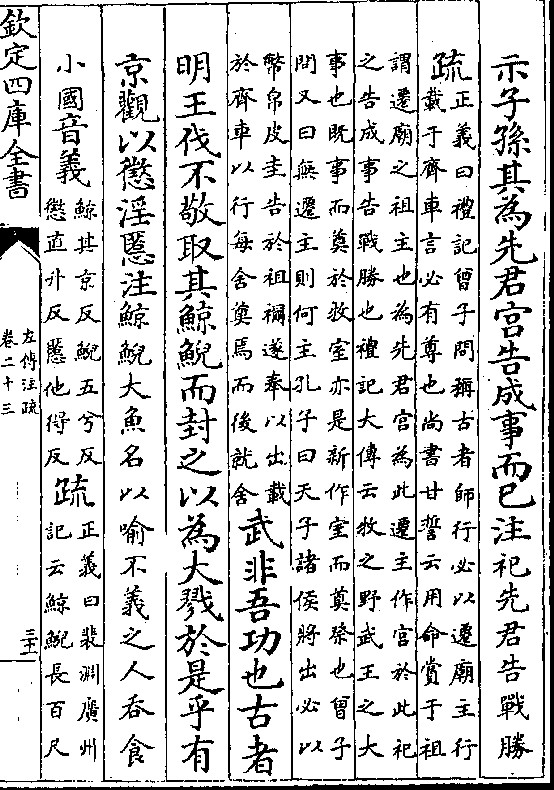 示子孫其為先君宫告成事而已注祀先君告戰勝
疏正義曰禮記曾子問稱古者師行必以遷廟主行
載于齊車言必有尊也尚書甘誓云用命賞于祖
謂遷廟之祖主也為先君宫為此遷主作宫於此祀
之告成事告戰勝也禮記大傳云牧之野武王之大
事也既事而奠於牧室亦是新作室而奠祭也曾子
問又曰無遷主則何主孔子曰天子諸侯將出必以
幣帛皮圭告於祖禰遂奉以出載
於齊車以行每舍奠焉而後就舍
武非吾功也古者
明王伐不敬取其鯨鯢而封之以為大戮於是乎有
京觀以懲淫慝注鯨鯢大魚名以喻不義之人吞食
小國音義
鯨其京反鯢五兮反
懲直升反慝他得反
疏
正義曰裴淵廣州
記云鯨鯢長百尺
欽定四庫全書
左傳注疏
卷二十三
三十一